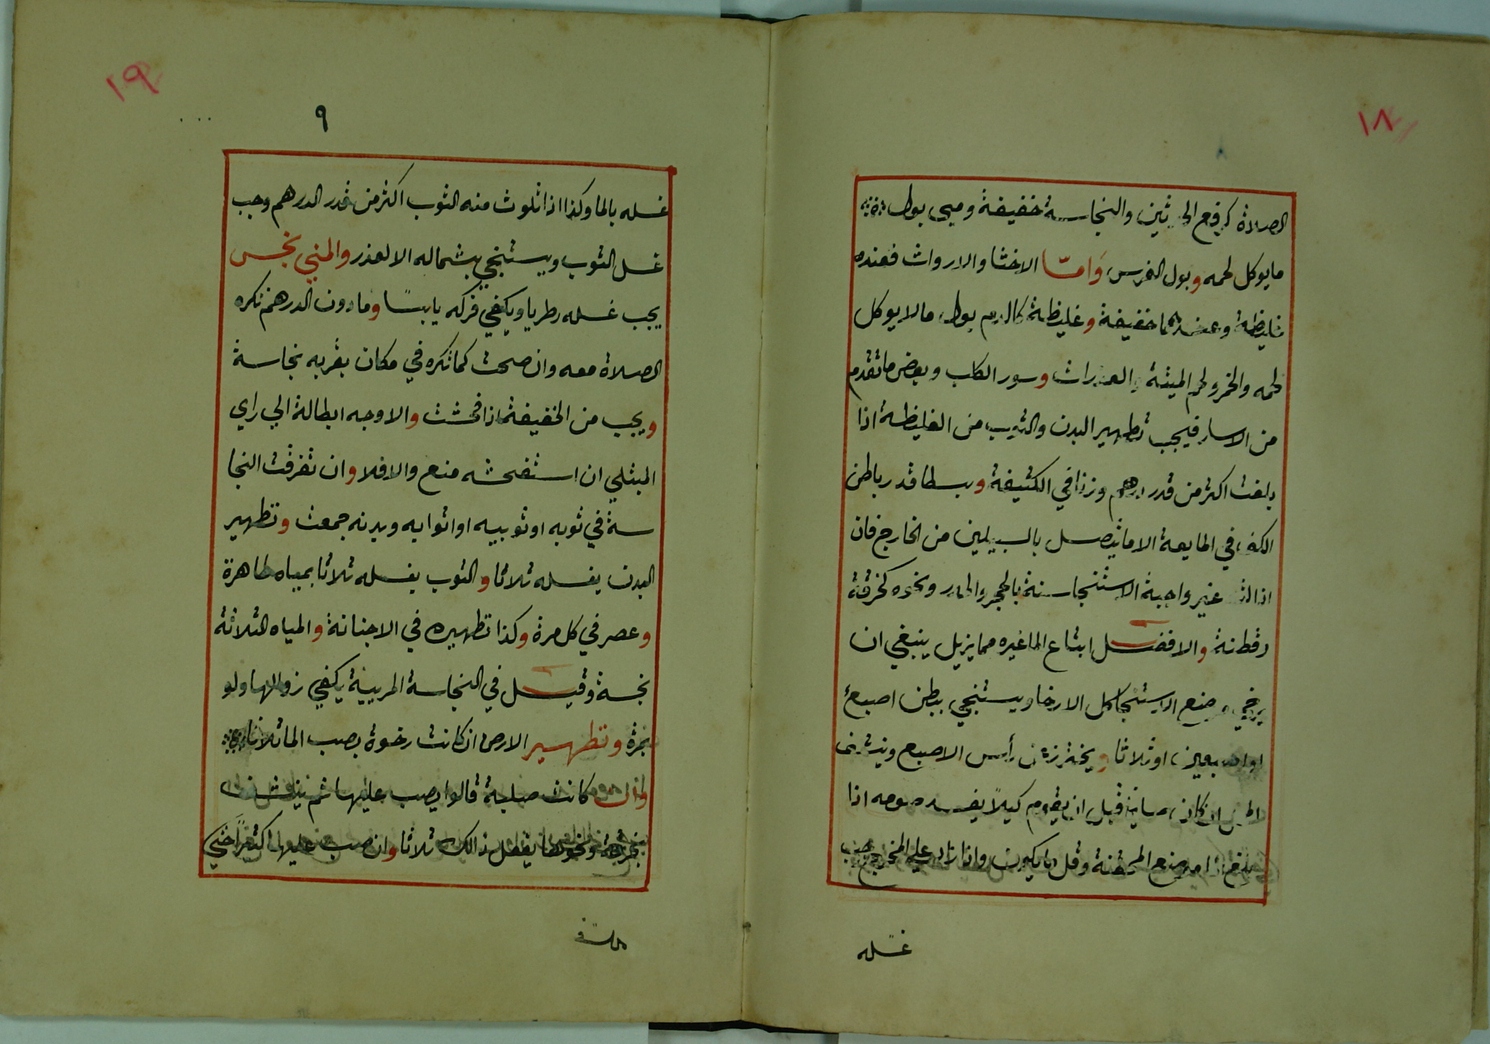 ١٨
الصلاة كرفع الحدثين والنجاسة خفيفة وهي بول
مايوكل لحمه وبول الفرس وامّا الاخثا والارواث فعنده
غليظة وعندهما خفيفة وغليظة كالدم بول مالا يوكل
لحمه والخمر ولحم الميتة والعذرات وسور الكلب وبعض ماتقدم
من الاسار فيجب تطهير البدن والثوب من الغليظة اذا
بلغت اكثر من قدر درهم وزنا في الكثيفة وبسطا قدر باطن
الكف في المايعة الا ما يتصل بالسبيلين من الخارج فان
غير واجبة الاستنجا سنة بالحجر والمدر ونحوه كخرقة
وقطنة والافضل اتباع الما غيره مما يزيل ينبغي ان
يرخي موضع الاستنجا كل الارخا ويستنجي ببطن اصبع
او اصبعين او ثلاثا ويحترز عن رأس الاصبع
ان كان قبل ان يقوم كيلا يفسد صومه اذا
موضع الحقنة وقل ما يكون واذا زاد على المخرج يجب
غسله
١٩
٩
غسله بالما وكذا اذا تلوث منه الثوب اكثر من قدر الدرهم وجب
غسل الثوب ويستنجي بشماله الا لعذر والمني نجس
يجب غسله رطريا ويكفي فركه يابسًا ومادون الدرهم نكره
الصلاة معه وان صحت كما تكره في مكان بقربه نجاسة
ويجب من الخفيفة اذا فحشت والاوجه ابطالة الي راي
المبتلي ان استفحشه منع والا فلا وان تفرقت النجا
سة في ثوبه او ثوبيه او اثوابه وبدنه جمعت وتطهير
البدن يغسله ثلاثا والثوب يغسله ثلاثا بمياه طاهرة
وعصر في كل مرة وكذا تطهيره في الاجنانة والمياه الثلاثة
نجسة وقيل في النجاسة المريية يكفي زوالها ولو
بمرة وتطهير الارض ان كانت رخوة بصب الما ثلاثا
وان كانت صلبة قالوا يصب عليها ثم ينشف
بخرقة ونحوها يفعل ذالك ثلاثا وان صب عليها كثيرًا حتي